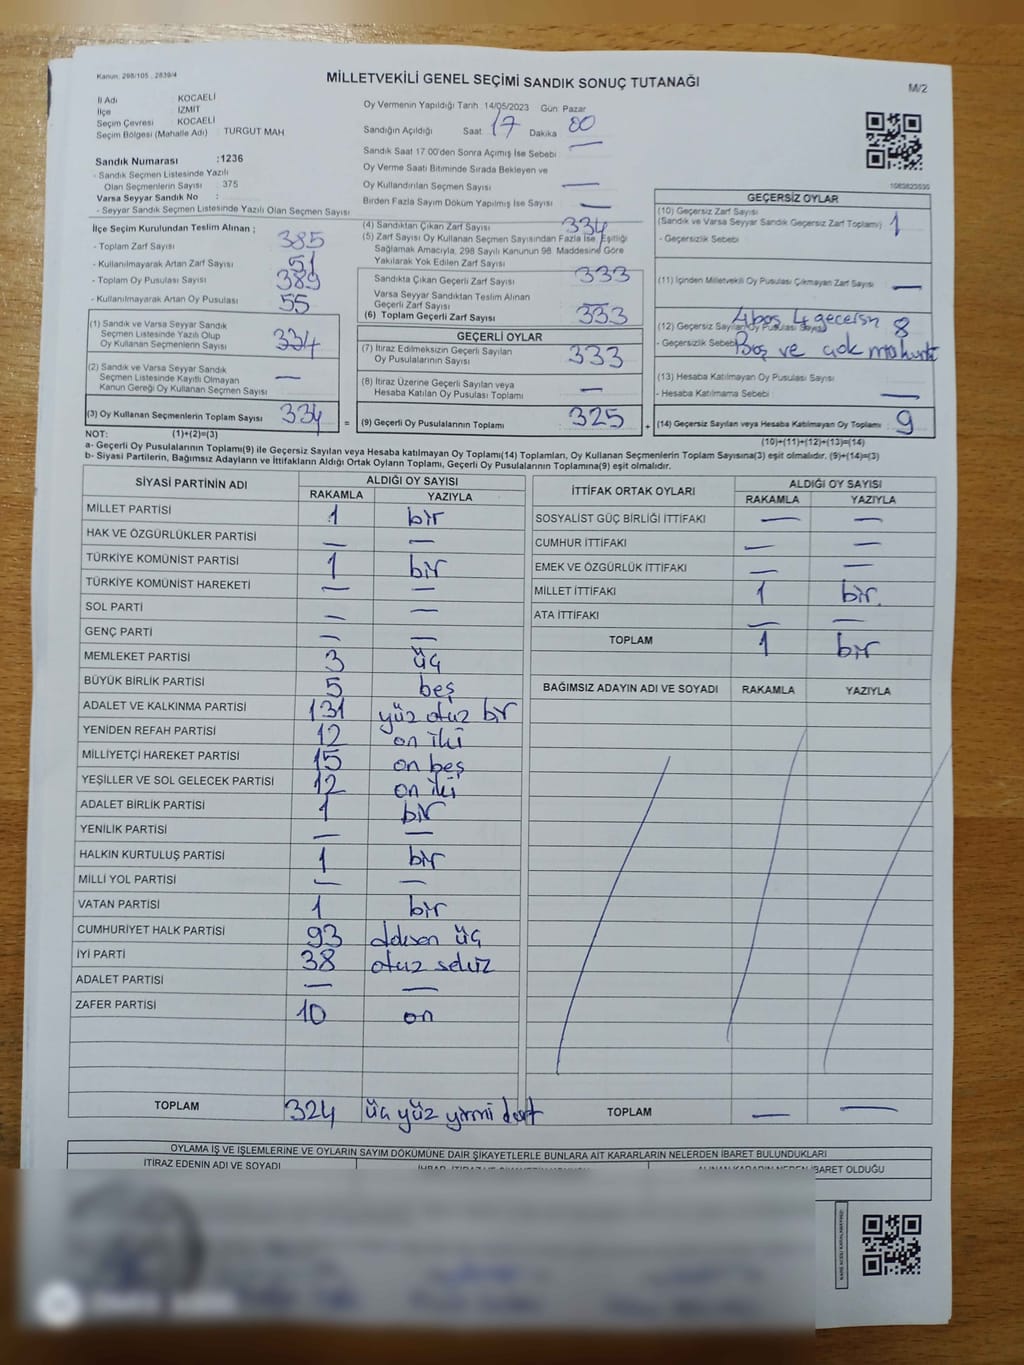 Kanun, 298/105 , 2839/4
MİLLETVEKİLİ GENEL SEÇİMİ SANDIK SONUÇ TUTANAĞI
M/2
İl Adı : KOCAELİ
İlçe : İZMİT
Seçim Çevresi : KOCAELİ
Seçim Bölgesi (Mahalle Adı) : TURGUT MAH
Sandık Numarası :1236
- Sandık Seçmen Listesinde Yazılı
Olan Seçmenlerin Sayısı : 375
Varsa Seyyar Sandık No :
- Seyyar Sandık Seçmen Listesinde Yazılı Olan Seçmen Sayısı
Oy Vermenin Yapıldığı Tarih 14/05/2023 Gün: Pazar
Sandığın Açıldığı Saat 17 Dakika 00
Sandık Saat 17.00'den Sonra Açılmış İse Sebebi —
Oy Verme Saati Bitiminde Sırada Bekleyen ve
Oy Kullandırılan Seçmen Sayısı —
Birden Fazla Sayım Döküm Yapılmış İse Sayısı —
1083823535
İlçe Seçim Kurulundan Teslim Alınan ;
- Toplam Zarf Sayısı 385
- Kullanılmayarak Artan Zarf Sayısı 51
- Toplam Oy Pusulası Sayısı 389
- Kullanılmayarak Artan Oy Pusulası 55
(1) Sandık ve Varsa Seyyar Sandık
Seçmen Listesinde Yazılı Olup
Oy Kullanan Seçmenlerin Sayısı 334
(2) Sandık ve Varsa Seyyar Sandık
Seçmen Listesinde Kayıtlı Olmayan
Kanun Gereği Oy Kullanan Seçmen Sayısı —
(3) Oy Kullanan Seçmenlerin Toplam Sayısı 334 =
(1)+(2)=(3)
(4) Sandıktan Çıkan Zarf Sayısı 334
(5) Zarf Sayısı Oy Kullanan Seçmen Sayısından Fazla İse, Eşitliği
Sağlamak Amacıyla, 298 Sayılı Kanunun 98. Maddesine Göre
Yakılarak Yok Edilen Zarf Sayısı
Sandıkta Çıkan Geçerli Zarf Sayısı 333
Varsa Seyyar Sandıktan Teslim Alınan
Geçerli Zarf Sayısı —
(6) Toplam Geçerli Zarf Sayısı 333
GEÇERLİ OYLAR
(7) İtiraz Edilmeksizin Geçerli Sayılan
Oy Pusulalarının Sayısı 333
(8) İtiraz Üzerine Geçerli Sayılan veya
Hesaba Katılan Oy Pusulası Toplamı —
(9) Geçerli Oy Pusulalarının Toplamı 325 +
GEÇERSİZ OYLAR
(10) Geçersiz Zarf Sayısı
(Sandık ve Varsa Seyyar Sandık Geçersiz Zarf Toplamı) 1
- Geçersizlik Sebebi
(11) İçinden Milletvekili Oy Pusulası Çıkmayan Zarf Sayısı —
4 boş 4 geçersiz
(12) Geçersiz Sayılan Oy Pusulası Sayısı 8
- Geçersizlik Sebebi Boş ve çok
(13) Hesaba Katılmayan Oy Pusulası Sayısı
- Hesaba Katılmama Sebebi —
(14) Geçersiz Sayılan veya Hesaba Katılmayan Oy Toplamı 9
(10)+(11)+(12)+(13)=(14)
NOT:
a- Geçerli Oy Pusulalarının Toplamı(9) ile Geçersiz Sayılan veya Hesaba katılmayan Oy Toplamı(14) Toplamları, Oy Kullanan Seçmenlerin Toplam Sayısına(3) eşit olmalıdır. (9)+(14)=(3)
b- Siyasi Partilerin, Bağımsız Adayların ve İttifakların Aldığı Ortak Oyların Toplamı, Geçerli Oy Pusulalarının Toplamına(9) eşit olmalıdır.
SİYASİ PARTİNİN ADI ALDIĞI OY SAYISI
RAKAMLA YAZIYLA
MİLLET PARTİSİ 1 bir
HAK VE ÖZGÜRLÜKLER PARTİSİ — —
TÜRKİYE KOMÜNİST PARTİSİ 1 bir
TÜRKİYE KOMÜNİST HAREKETİ — —
SOL PARTİ — —
GENÇ PARTİ — —
MEMLEKET PARTİSİ 3 üç
BÜYÜK BİRLİK PARTİSİ 5 beş
ADALET VE KALKINMA PARTİSİ 131 yüz otuz bir
YENİDEN REFAH PARTİSİ 12 on iki
MİLLİYETÇİ HAREKET PARTİSİ 15 on beş
YEŞİLLER VE SOL GELECEK PARTİSİ 12 on iki
ADALET BİRLİK PARTİSİ 1 bir
YENİLİK PARTİSİ — —
HALKIN KURTULUŞ PARTİSİ 1 bir
MİLLİ YOL PARTİSİ — —
VATAN PARTİSİ 1 bir
CUMHURİYET HALK PARTİSİ 93 doksan üç
İYİ PARTİ 38 otuz sekiz
ADALET PARTİSİ — —
ZAFER PARTİSİ 10 on
TOPLAM 324 üç yüz yirmi dört
İTTİFAK ORTAK OYLARI ALDIĞI OY SAYISI
RAKAMLA YAZIYLA
SOSYALİST GÜÇ BİRLİĞİ İTTİFAKI — —
CUMHUR İTTİFAKI — —
EMEK VE ÖZGÜRLÜK İTTİFAKI — —
MİLLET İTTİFAKI 1 bir
ATA İTTİFAKI — —
TOPLAM 1 bir
BAĞIMSIZ ADAYIN ADI VE SOYADI RAKAMLA YAZIYLA
TOPLAM — —
OYLAMA İŞ VE İŞLEMLERİNE VE OYLARIN SAYIM DÖKÜMÜNE DAİR ŞİKAYETLERLE BUNLARA AİT KARARLARIN NELERDEN İBARET BULUNDUKLARI
İTİRAZ EDENİN ADI VE SOYADI
ALINAN KARARIN NEDEN İBARET OLDUĞU